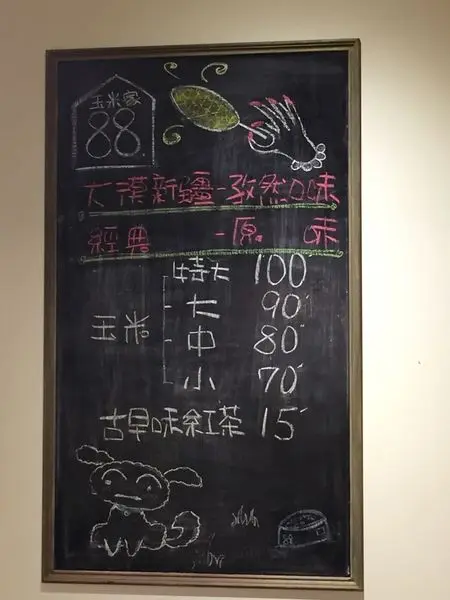 玉米家
88
大漠新疆-孜然口味
經典 -原 味
特大 100
大 90
玉米 中 80
小 70
古早味紅茶 15
88